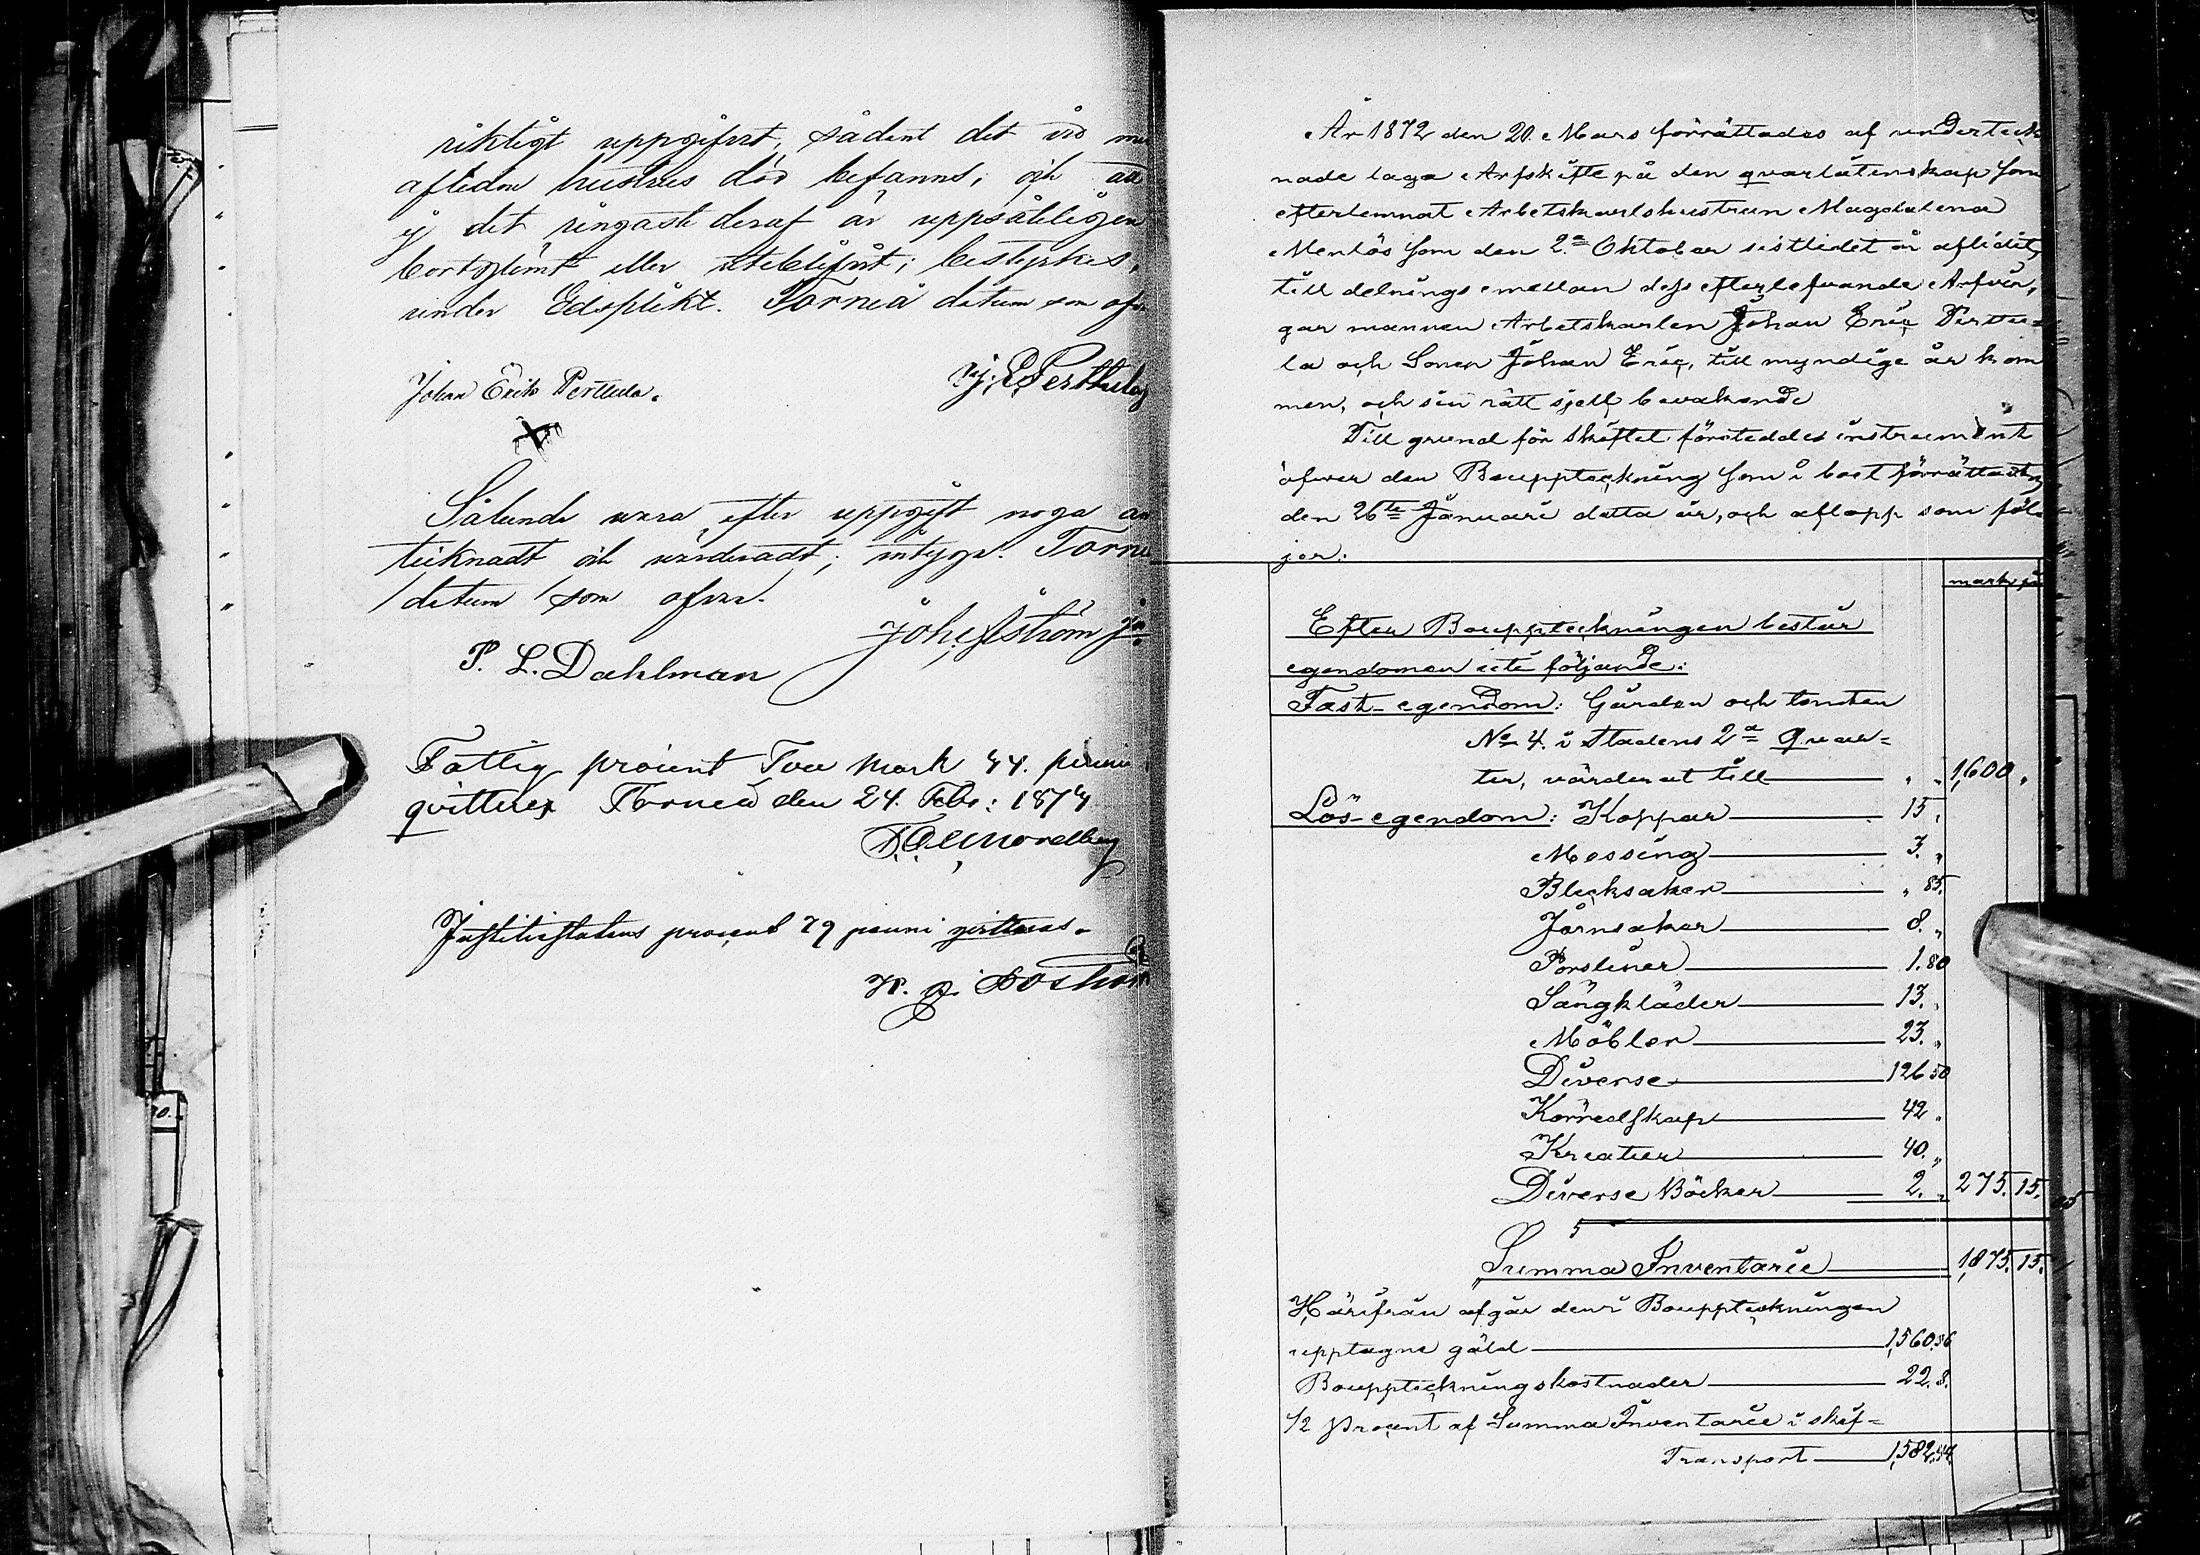 riktigt uppgifvet, sådant det vid min
aflidna hustrus död befanns, och att
ej det ringaste deraf är uppsåteligen
bortglömt eller uteblifvit; bestyrkes
under Edsplikt. Torneå datum som ofvan
Johan Erik Perttula. J. E. Perttula
X
Sålunda vara efter uppgift noga an
tecknadt och värderadt; intyga. Torneå
datum som ofvan.
P. L. Dahlman
Fattig procent Två Mark 44. penni
qvitteras Torneå den 24. Febr: 1874
Justitiestatens procent 79 penni qvitteras.
År 1872 den 20. Mars förrättades af underteck
nade laga Arfskifte på den qvarlåtenskap som
efterlemnat Arbetskarlshustrun Magdalena
som den 2a Oktober sistlidet år aflidit,
till delnings emellan dess efterlefvande Arfvin,
gar mannen Arbetskarlen Johan Eric Perttu=
la och Sonen Johan Eric, till myndige år kom
men, och sin rätt sjelf bevakande
Till grund för skiftet företeddes instrument
öfver den Bouppteckning som i boet förrättats
den 26te Januari detta år, och aflopp som föl
jer:
mark pi
Efter Bouppteckningen består
egendomen uti följande:
Fast-egendom: Gården och tomten
No 4. i Stadens 2a Qvar=
ter, värderat till „ „ 1,600 „
Lös-egendom: Koppar 15.
Messing 3. „
Blecksaker „ 85.
Jernsaker 8. „
Porsliner 1.80
Sängkläder 13. „
Möbler 23. „
Diverse 126 50
Körredskap 42 „
Kreatur 40. „
Diverse Böcker 2. „ 275. 15.
Summa Inventarie 1,875. 15.
Härifrån afgår den i Bouppteckningen
upptagne gäld 1,560.36
Bouppteckningskostnader 22. 8.
1/2 Procent af Summa Inventarie i skif=
Transport 1,582.44